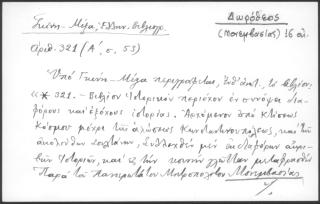 Γκίνη - Μέξα, Ἑλλην. Βιβλιογρ.
Δωρόθεος
(Μονεμβασίας) 16 αἰ.
Ἀριθ. 321 (Α', σ. 53)
Ὑπὸ Γκίνη - Μέξα περιγράφεται, τὸ Βιβλίον:
«* 321. - Βιβλίον Ἱστορικὸν περιέχον ἐν συνόψει δια-
φόρους καὶ ἐξόχους ἱστορίας. Ἀρχόμενον ἀπὸ κτίσεως
Κόσμου μέχρι τῆς ἁλώσεως Κωνσταντινουπόλεως, καὶ τῶν
Συλλεχθὲν μὲν ἐκ διαφόρων
Ἱστοριῶν, καὶ εἰς τὴν κοινὴν γλῶτταν μεταφρασθὲν
Παρὰ τοῦ Ἱερωτάτου Μητροπολίτου Μονεμβασίας